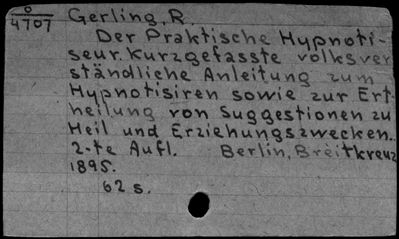 0
4707
Gerling, R.
Der Praktische Hypnoti-
seur. Kurzgefasste volksver
ständliche Anleitung zum
Hypnotisiren sowie zur Ert
heilung von Suggestionen zu
Heil und Erziehungszwecken..
2-te Aufl. Berlin, Breitkreuz
1895.
62 s.